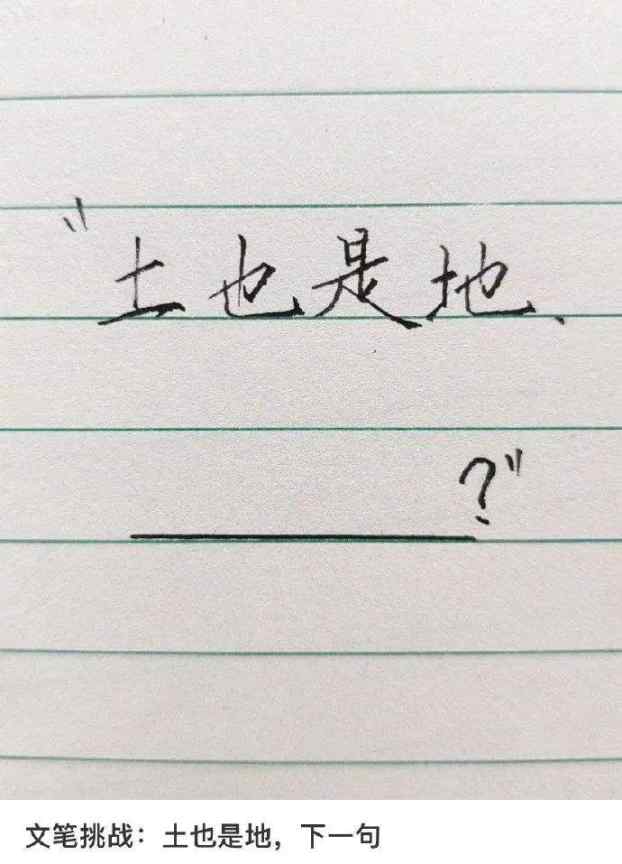 “土也是地、
______?”
文笔挑战：土也是地，下一句